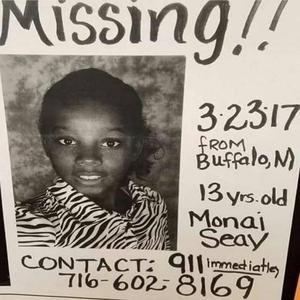 Missing!!
3-23-17
from
Buffalo, N
13 yrs. old
Monai
Seay
CONTACT: 911 immediatley
716-602-8169